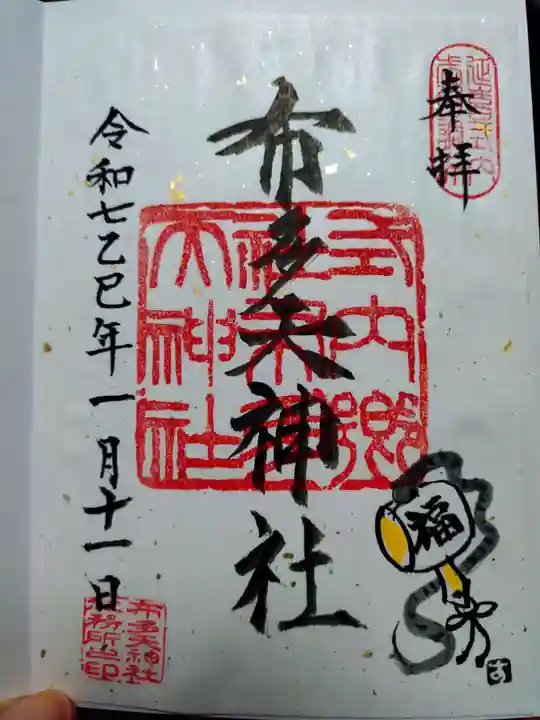 奉拝
布多天神社
式内郷社布多天神社
令和七乙巳年一月十一日
福
布多天神社社務所之印